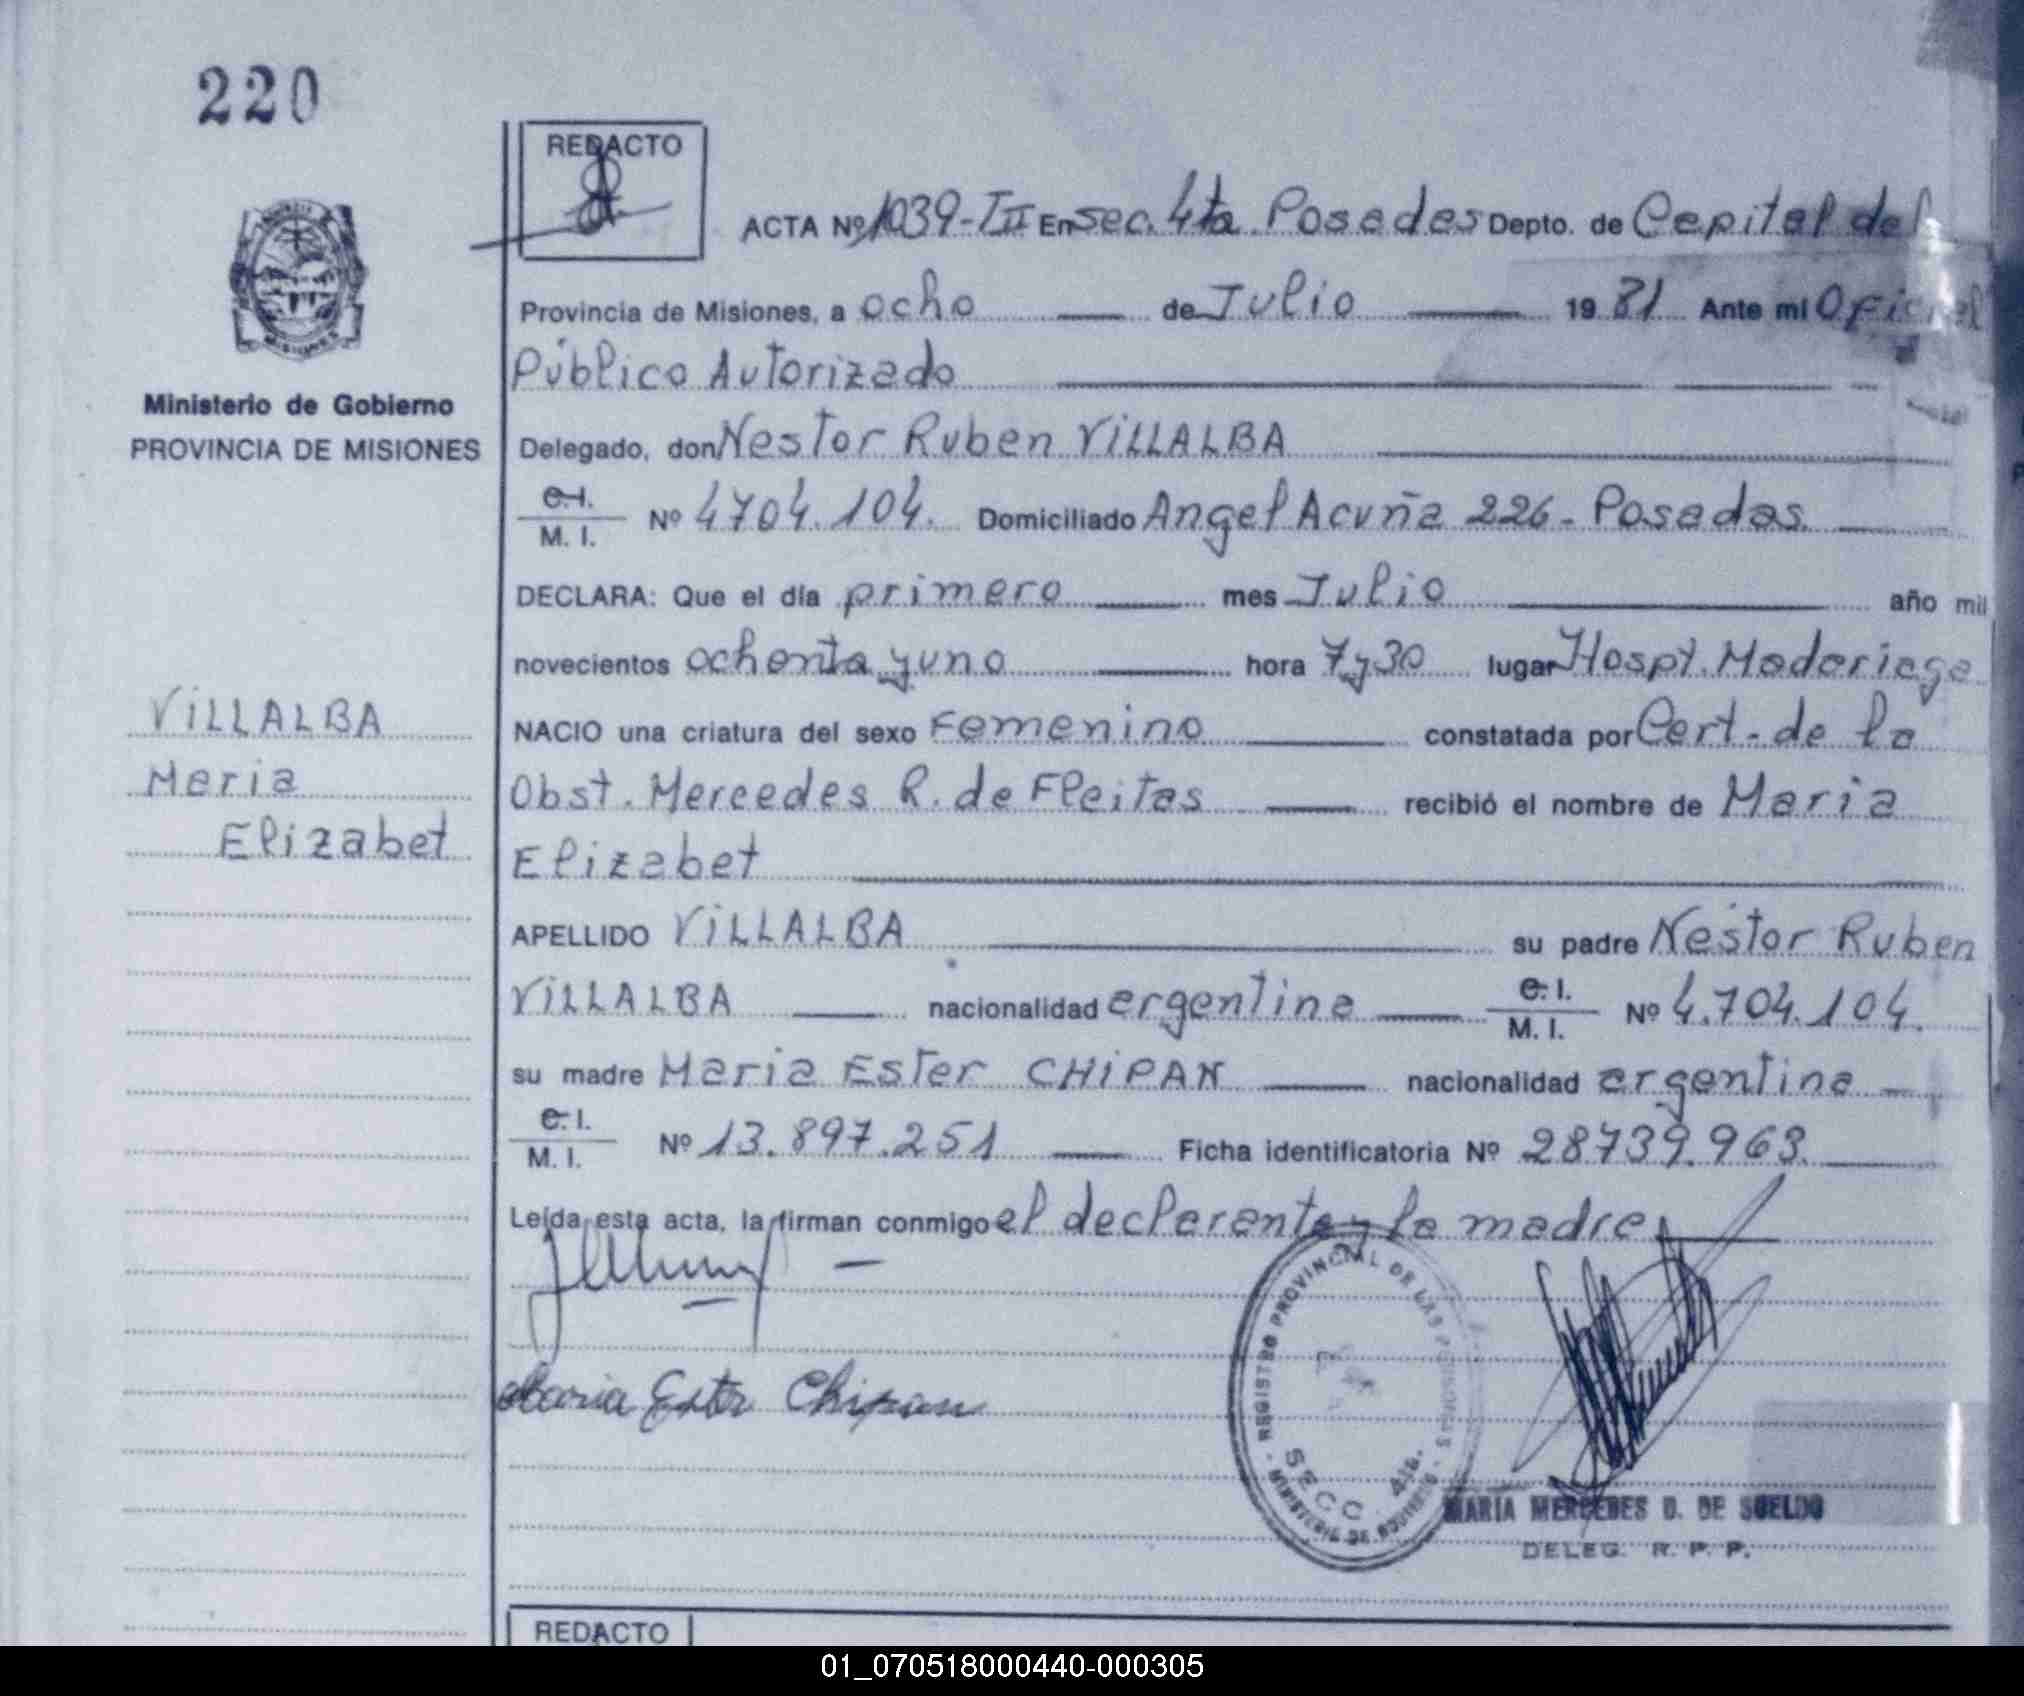 220
REDACTO
ACTA Nº 1039-III En sec. 4ta. Posadas Depto. de Capital del
Provincia de Misiones, a ocho de Julio 1981 Ante mi Oficial
Público Autorizado
Ministerio de Gobierno
PROVINCIA DE MISIONES
Delegado, don Nestor Ruben VILLALBA
C.I.
M. I. Nº 4704.104. Domiciliado Angel Acuña 226 - Posadas
DECLARA: Que el día primero mes Julio año mil
novecientos ochenta y uno hora 7 y 30 lugar Hospt. Madariaga
VILLALBA
Maria
Elizabet
NACIO una criatura del sexo Femenino constatada por Cert. de la
Obst. Mercedes R. de Fleitas recibió el nombre de Maria
Elizabet
APELLIDO VILLALBA su padre Nestor Ruben
VILLALBA nacionalidad argentina C. I.
M. I. Nº 4.704.104.
su madre Maria Ester CHIPAN nacionalidad argentina
C. I.
M. I. Nº 13.897.251 Ficha identificatoria Nº 28739.963.
Leída esta acta, la firman conmigo el declarante y la madre
Maria Ester Chipan
REGISTRO PROVINCIAL DE LAS PERSONAS
SECC. 4ta.
MINISTERIO DE GOBIERNO
MARIA MERCEDES D. DE SUELDO
DELEG. R. P. P.
REDACTO
01_070518000440-000305